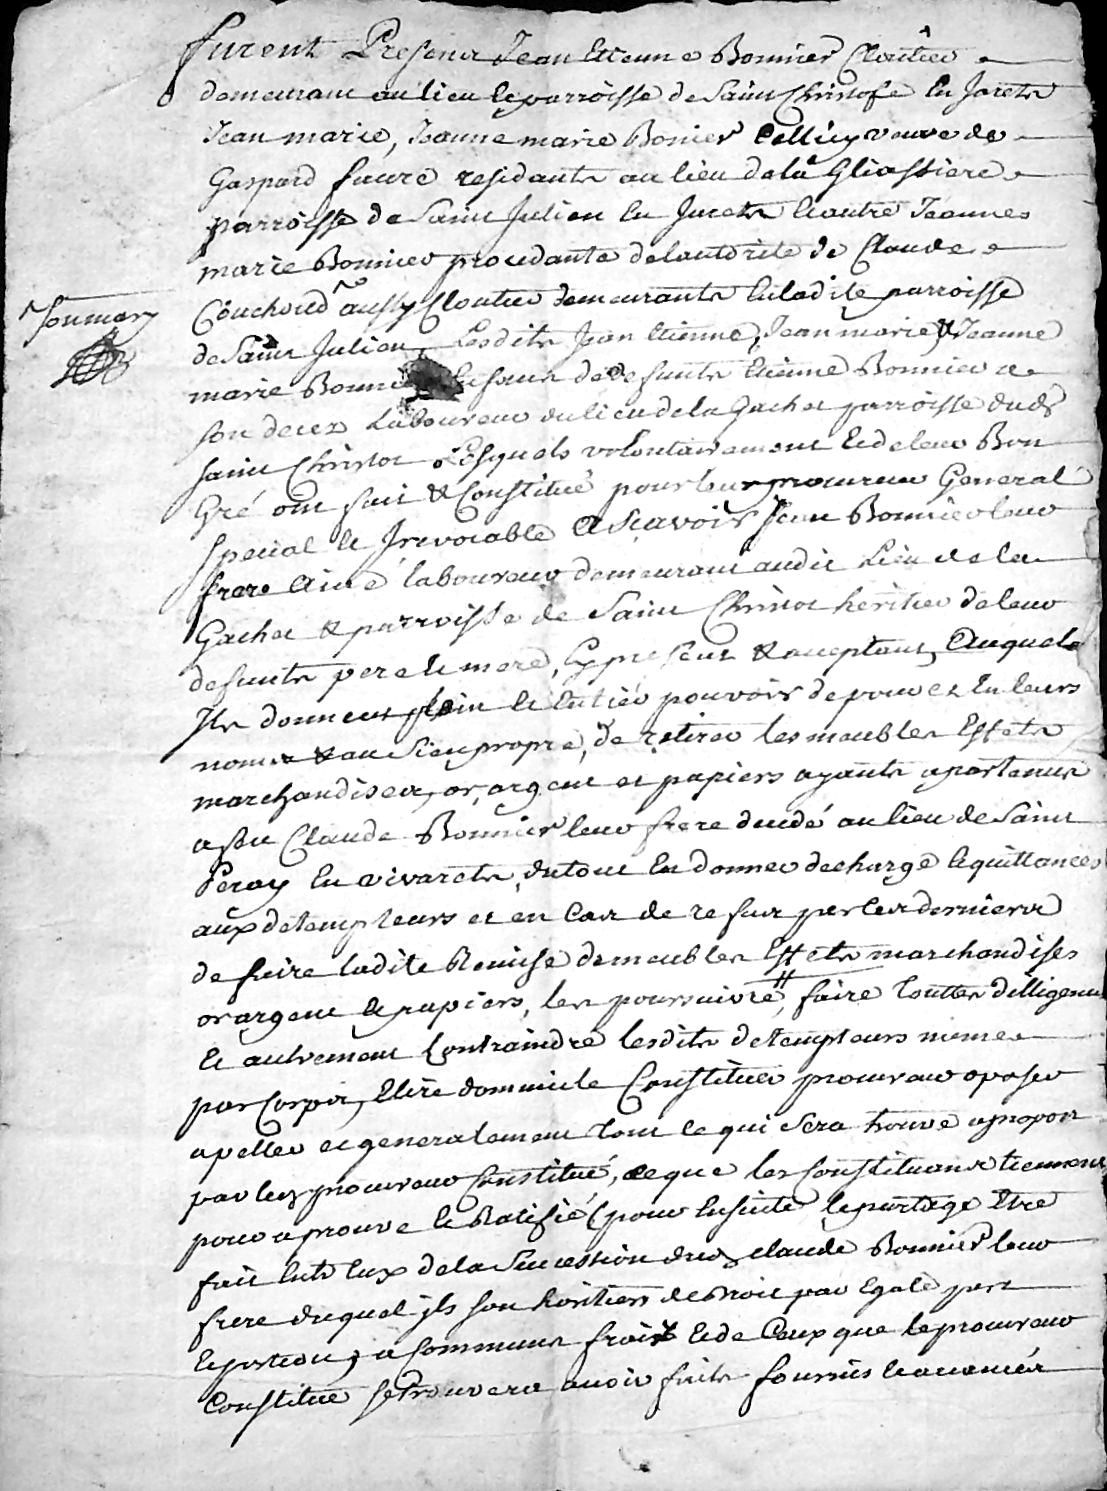 furent Presens Jean Etienne Bonnier Cloutier
demeurant au lieu & parroisse de Saint Christofe En Jarets
Jean marie, Jeanne marie Bonier Celluy veuve de
Gaspard faure residante au lieu dela Gliassiere
parroisse de Saint Julien En Jarets & autre Jeanne
marie Bonnier procedante delautorité de Claude
Couchoud aussy Cloutier demeurants En ladite parroisse
Joumary
de Saint Julien, Lesdits Jean Etienne, Jean marie & Jeanne
marie Bonnier Enfans de defunts Etienne Bonnier a
son deces Laboureur du lieu dela Gachet parroisse dudt
Saint Christot Lesquels volontairement & de leur Bon
Gré ont fait & Constitué pour leur procureur General
special & Irrevocable a sçavoir Jean Bonnier leur
frere Ainé laboureur demeurant audit Lieu de la
Gachet & parroisse de Saint Christot heritier de leur
defunts pere & mere, Cy present & acceptant, Auquel
Ils donnent plein & Entier pouvoir de pour & En leurs
noms & au sien propre, de retirer les meubles Effets
marchandises, or, argent et papiers ayants apartenus
a feu Claude Bonnier leur frere decedé au lieu de Saint
Peray En vivarets, du tout En donner decharge & quittances
aux detempteurs et en Cas de refus par ces derniers
de faire ladite Remise de meubles Effets marchandises
or argent & papiers, les poursuivre, faire touttes dilligences
& autrement Contraindre lesdits detempteurs meme
par Corps, Elire domicile Constituer procureur oposer
apeller et generalement tout ce qui sera trouvé apropos
par led procureur Constitué, ce que les Constituans tiennent
pour aprouvé & Ratifié (pour Ensuite le partage Etre
fait Entre Eux dela Succession dud Claude Bonnier leur
frere duquel ils son heritiers de Droit par Egale part
& portion, a Communs fraix & de Ceux que le procureur
Constitué se trouvera avoir faits fournis & avancés